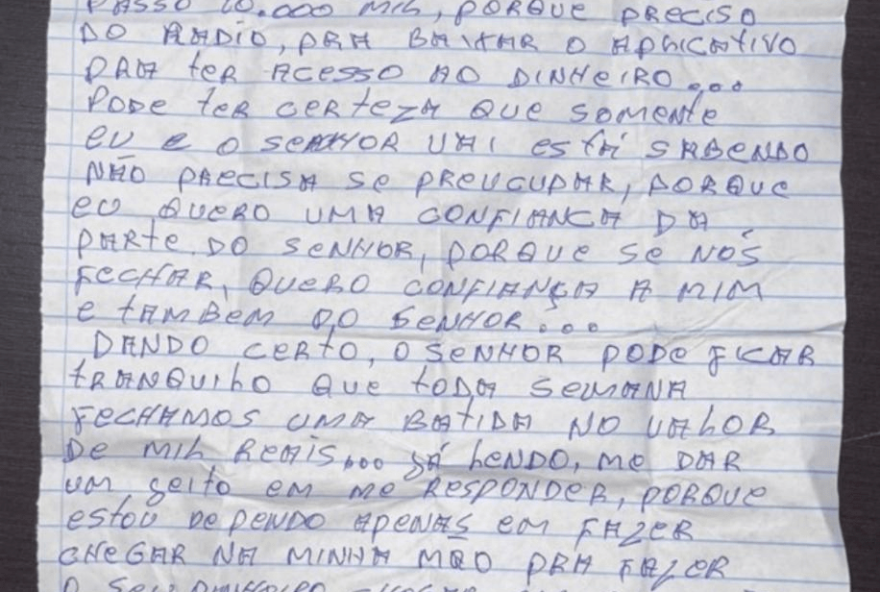 PASSO 10.000 MIL, PORQUE PRECISO
DO RADIO, PRA BAIXAR O APLICATIVO
PRA ter ACESSO AO DINHEIRO...
PODE ter certeza QUE SOMENTE
EU E O SENHOR VAI ESTÁ SABENDO
NÃO PRECISA SE PREUCUPAR, PORQUE
EU QUERO UMA CONFIANCA DA
PARTE DO SENHOR, PORQUE SE NÓS
FECHAR, QUERO CONFIANÇA A MIM
E TAMBÉM DO SENHOR...
DANDO CERTO, O SENHOR PODE FICAR
TRANQUILO QUE TODA SEMANA
FECHAMOS UMA BATIDA NO VALOR
DE MIL REAIS... JÁ LENDO, ME DAR
UM GEITO EM ME RESPONDER, PORQUE
ESTOU DEPENDO APENAS EM FAZER
CHEGAR NA MINHA MÃO PRA FAZER
O SEU DINHEIRO